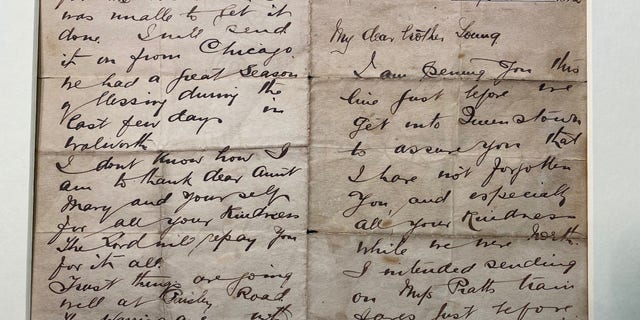 was unable to get it
done. I will send
it on from Chicago.
We had a great Season
of blessing during the
last few days in
Walworth
I dont know how I
am to thank dear Aunt
Mary and Yourself
for all your Kindness
The Lord will repay You
for it all.
Trust things are going
well at Paisley Road
My dear brother Young
I am penning You this
line just before we
get into Queenstown
to assure you that
I have not forgotten
You, and especially
all your kindness
while we were North.
I intended sending
on Miss Pratts train
fares just before